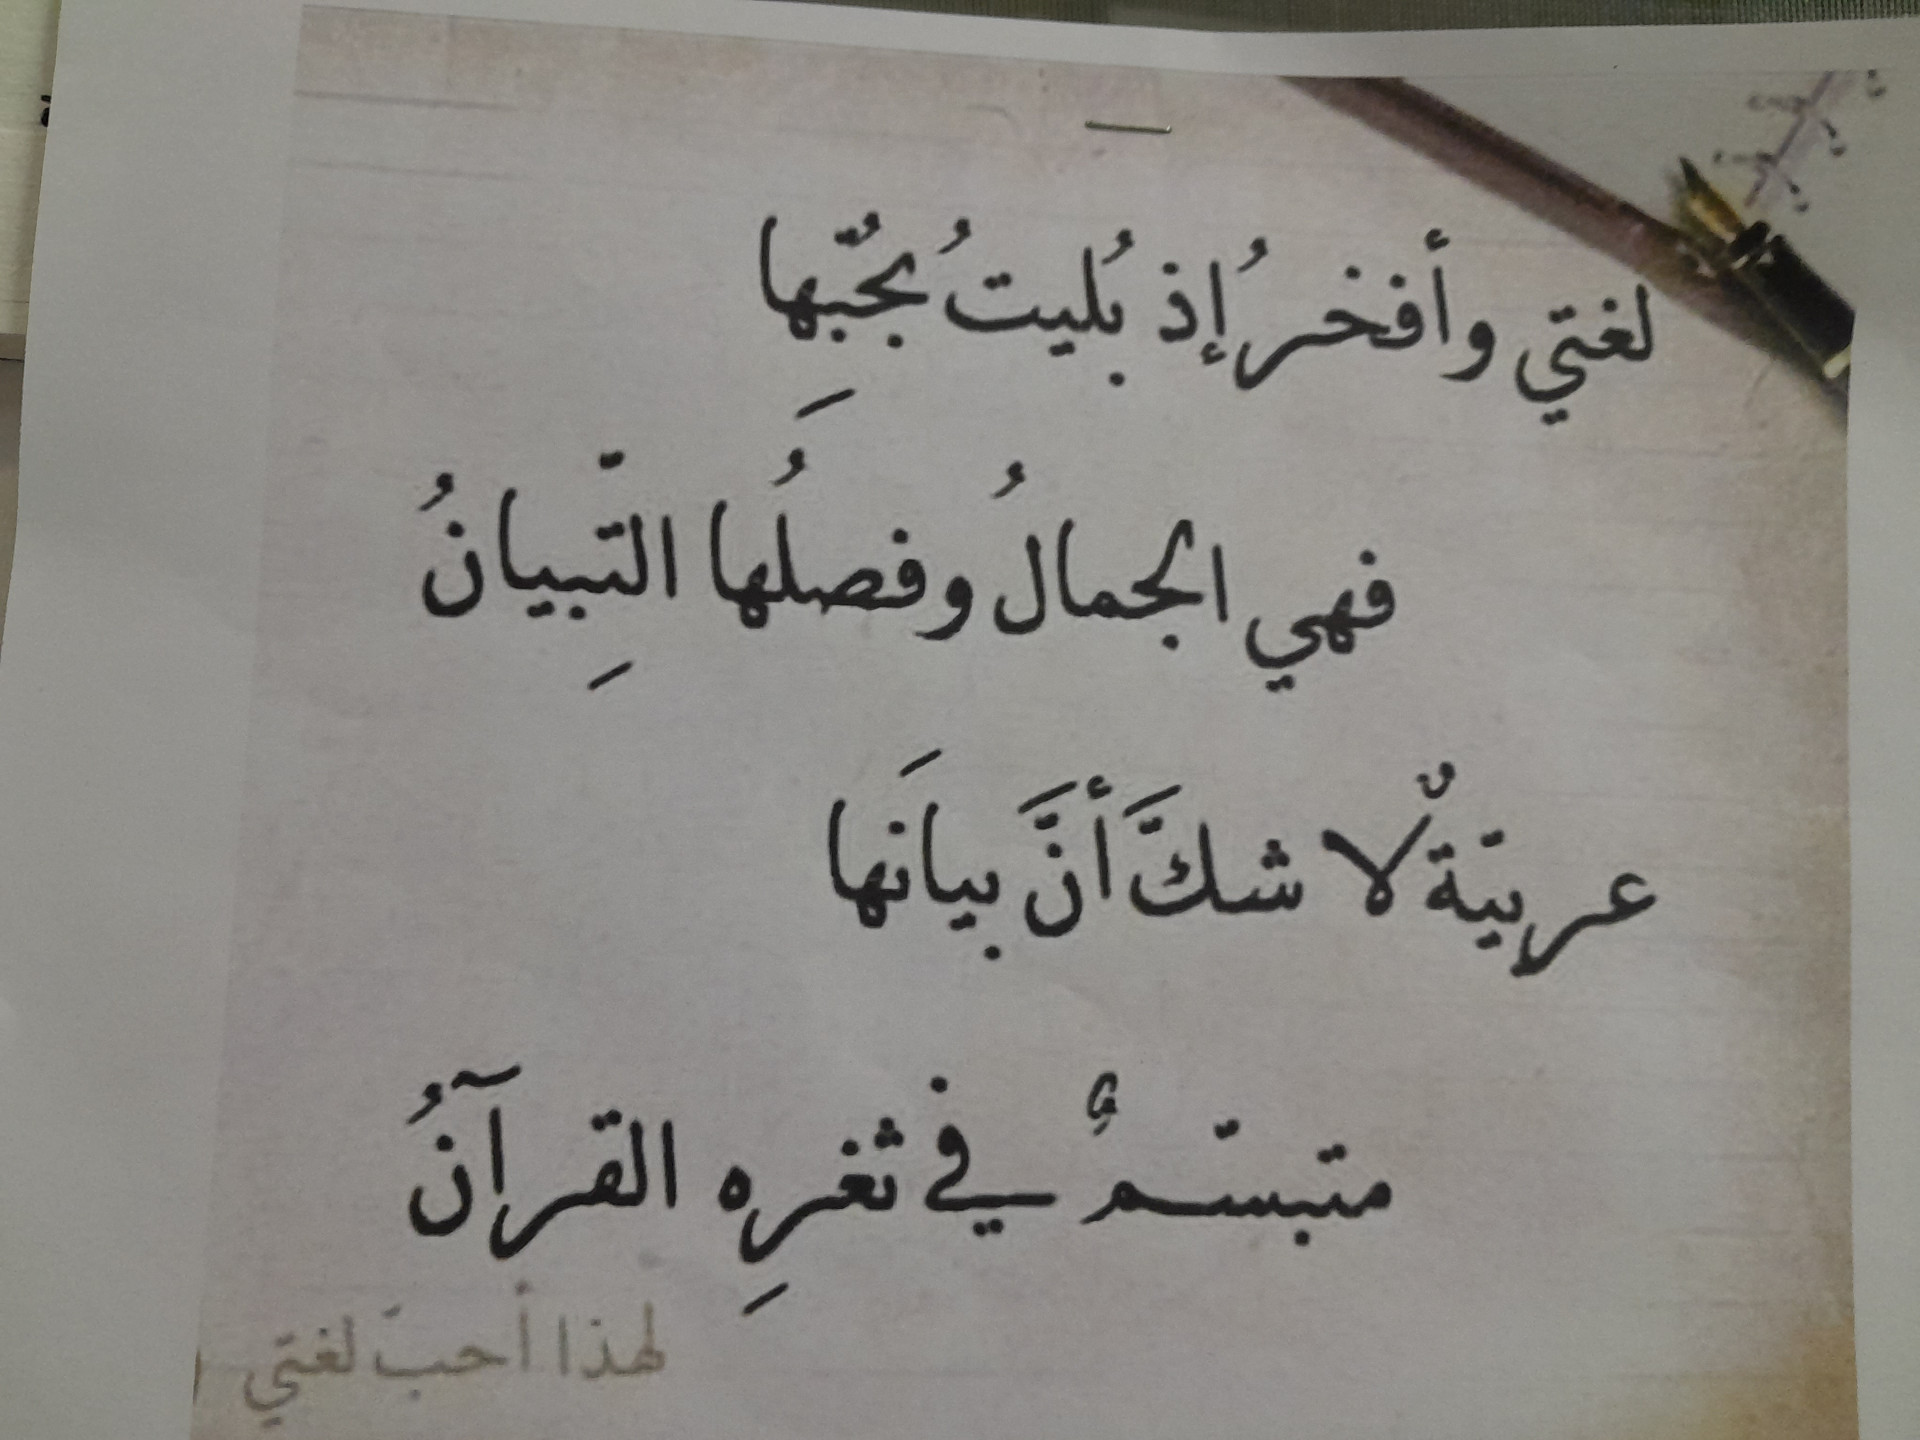 لغتي وأفخرُ إذ بُليتُ بحُبّها
فهي الجمالُ وفصلُها التِّبيانُ
عربيّةٌ لا شكَّ أنَّ بيانَها
متبسّمٌ في ثغرِهِ القرآنُ
لهذا أحبّ لغتي